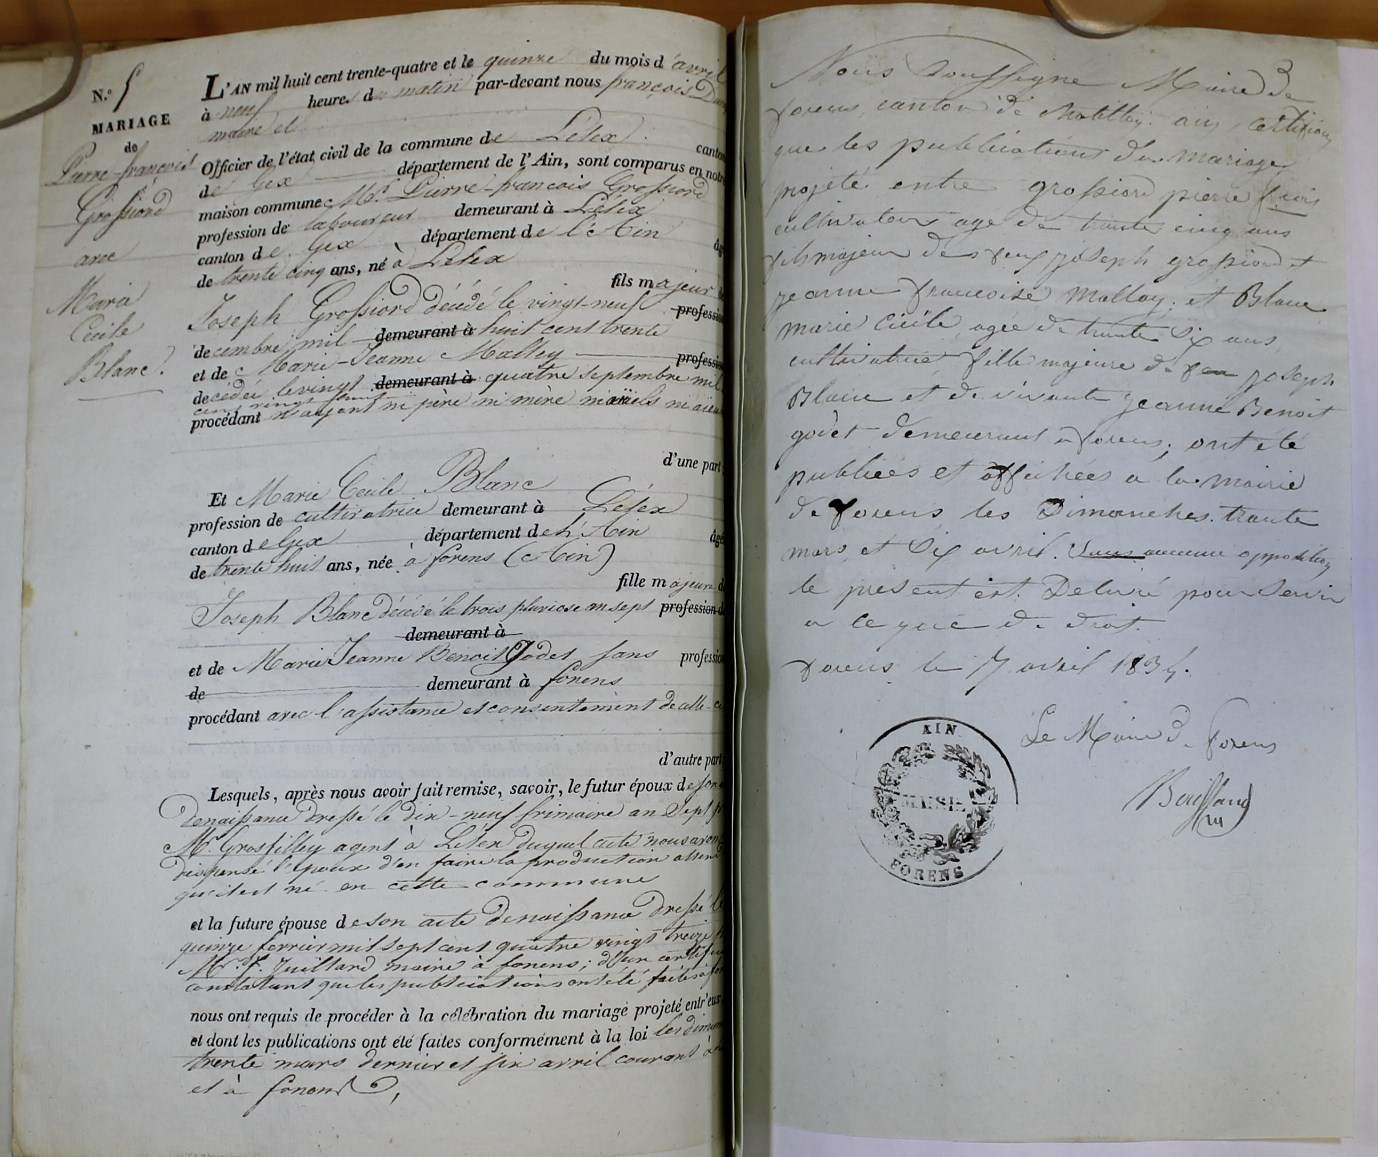 N.° 5
MARIAGE
de
Pierre françois
Grossiord
avec
Marie
Cecile
Blanc.
L'AN mil huit cent trente-quatre et le quinze du mois d'avril
à neuf heure. du matin par-devant nous françois
maire et
Officier de l'état civil de la commune de Lelex. canton
de Gex département de l'Ain, sont comparus en notre
maison commune Mr. Pierre-francois Grossiord
profession de laboureur demeurant à Lelex
canton de Gex département de l'Ain âgé
de trente cinq ans, né à Lelex
fils majeur de
Joseph Grossiord décédé le vingt-neuf profession
decembre mil demeurant à huit cent trente
et de Marie-Jeanne Malley profession
décédée le vingt demeurant à quatre septembre mil
procédant n'ayant ni père ni mère ni aieuls ni
d'une part
Et Marie Cecile Blanc
profession de cultivatrice demeurant à Lélex
canton de Gex département de l'Ain âgée
de trente huit ans, née à forens (Ain)
fille majeure de
Joseph Blanc décédé le trois pluviose an sept profession d
demeurant à
et de Marie Jeanne Benoit Godet sans profession
de demeurant à forens
procédant avec l'assistance et consentement de celle-ci
d'autre part
Lesquels, après nous avoir fait remise, savoir, le futur époux de son
denaissance dressé le dix-neuf frimaire an sept
Mr. Grosfilley agent à Lelex duquel acte nous avons
dispensé l'époux d'en faire la production attendu
qu'il est né en cette commune
et la future épouse de son acte denaissance dressé le
quinze fevrier mil sept cent quatre vingt treize
Mr. J. Juillard maire à forens; d'un certificat
constatant que les publications ont été faites à
nous ont requis de procéder à la célébration du mariage projeté entr'eux
et dont les publications ont été faites conformément à la loi les
trente mars dernier et six avril courant à
et à forens,
Nous Soussigne Maire de
forens canton de Chatillon certifions
que les publications du mariage
projeté entre grossiord pierre
cultivateur age de trente cinq ans
fils majeur des feux joseph grossiord et
jeanne francoise Mallay. et Blanc
marie Cicile agée de trente ans
cultivatrice fille majeure de feu joseph
Blanc et de vivante jeanne Benoit
godet demeurant a forens, ont été
publiées et affichées a la mairie
de forens, les Dimanches. trante
mars et Six avril. Sans aucune opposition
le présent est. Delivré pour Servir
a ce que de droit
forens le 7 avril 1834.
Le Maire de forens
AIN
MAIRIE
FORENS